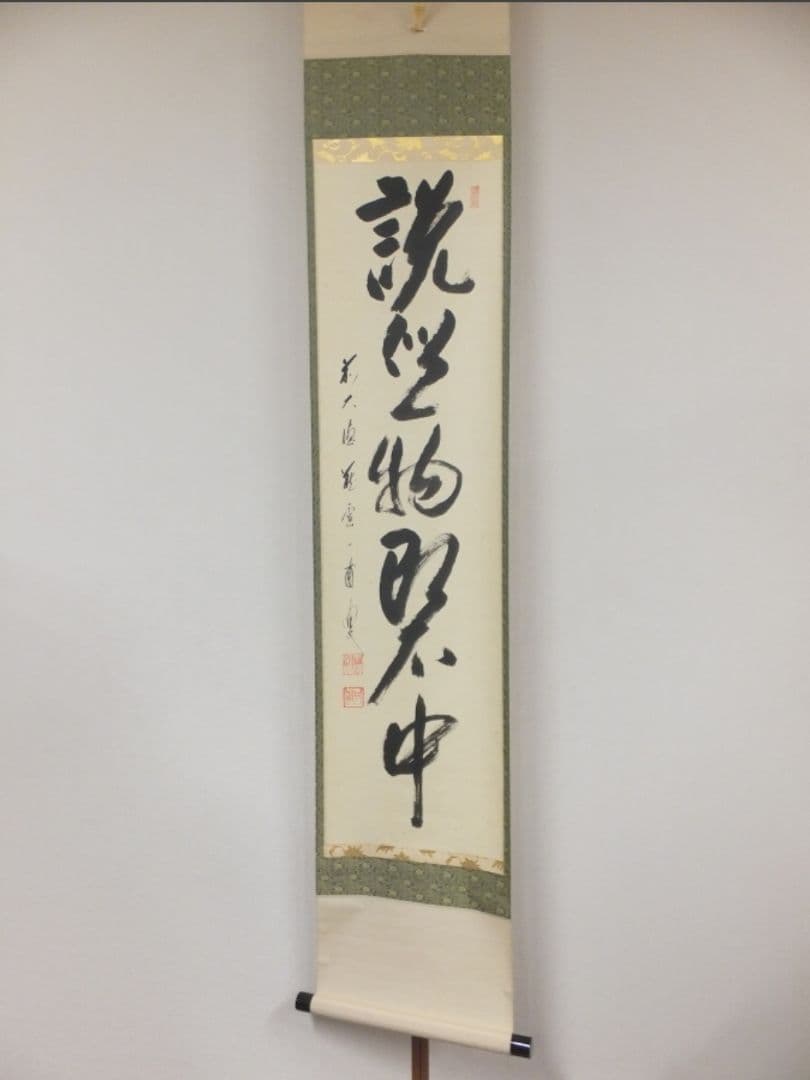 説似一物即不中
前大徳 雲一甫叟